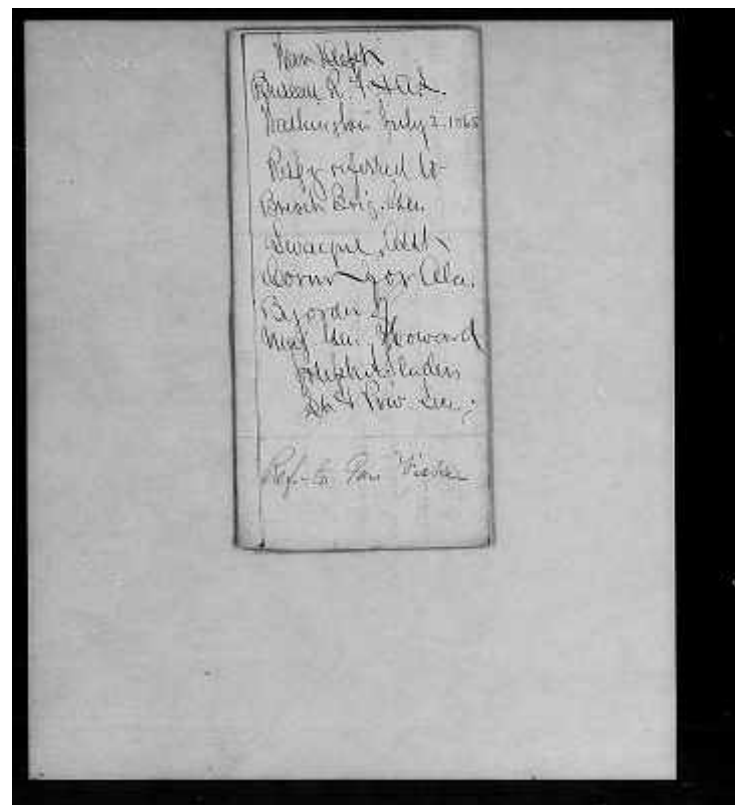 War Dept
Bureau R. F. & A. L.
Washington July 2. 1865
Resfy referred to
Brevet Brig. Gen.
Swayne, Asst
Comr for Ala.
By order of
Maj Gen. Howard
& Priv Sec.
Ref. to Gen